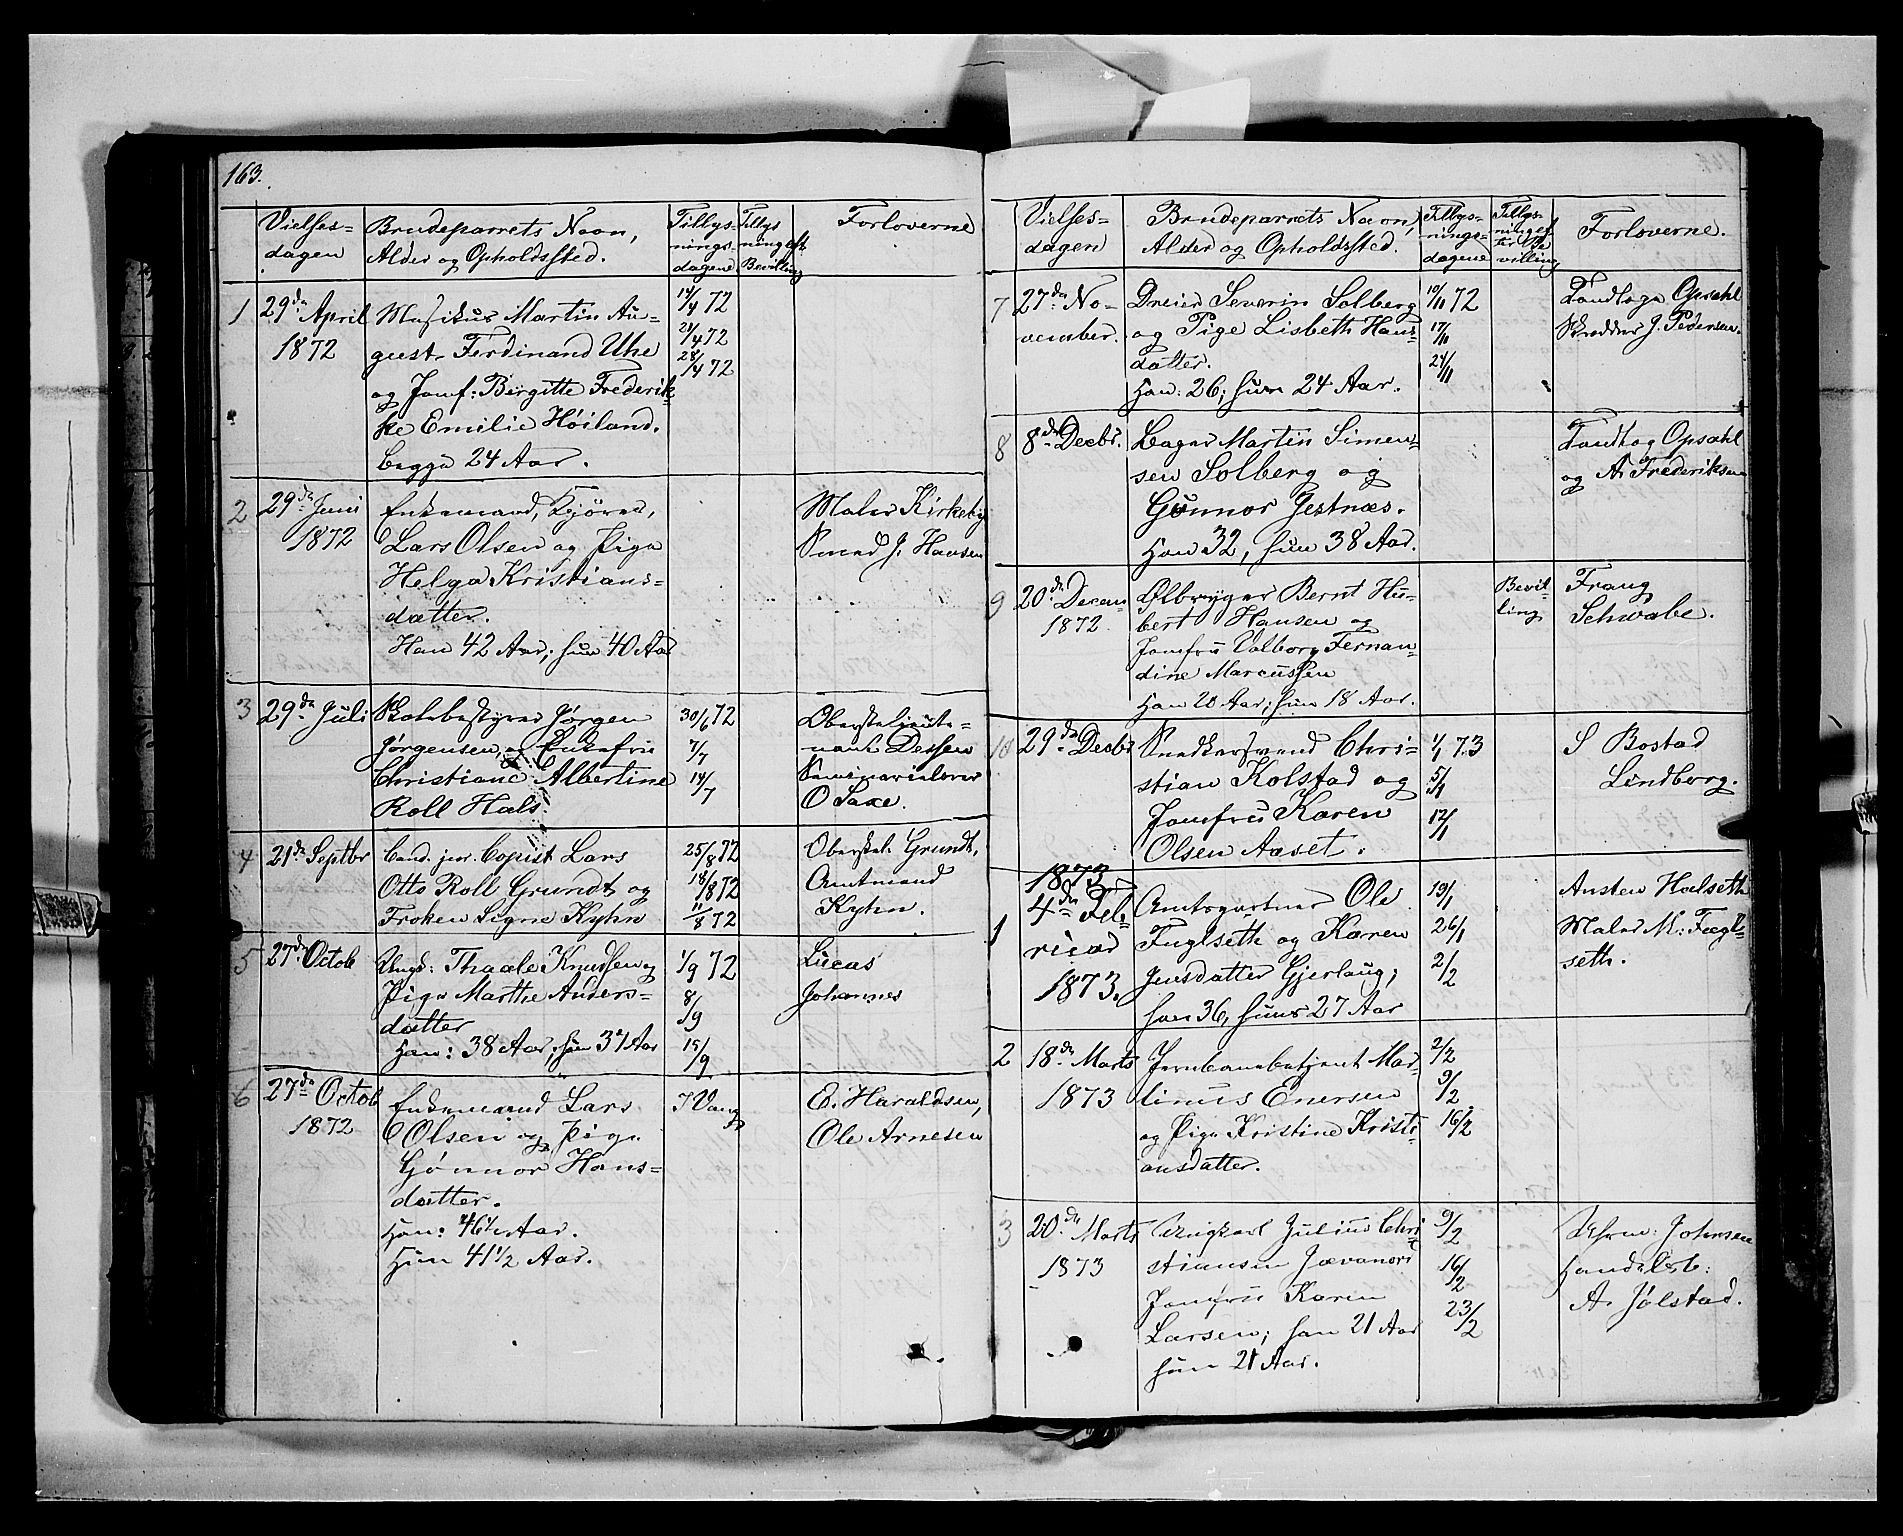 163.
Vielses-
dagen
Brudeparrets Navn,
Alder og Opholdssted.
Tillys-
nings-
dagene
Tillys
ning eft
Bevilling
Forloverne
1
29de April
1872
Musikus Martin Au-
gust Ferdinand Uhe
og Jomf: Birgitte Frederik-
ke Emilie Höiland.
begge 24 Aar.
14/4 72
21/4 72
28/4 72
2
29de Juni
1872
Enkemand,
Lars Olsen og Pige
Helga Kristians-
datter.
Han 42 Aar; hun 40 Aar
Maler Kirkeby
Smed J. Hansen
3
29de Juli
Skolebestyrer Jørgen
Jørgensen og Enkefru
Christiane Albertine
Roll Hals.
30/6 72
7/7
14/7
Oberstlieute-
nant Dessen
Seminarielærer
O Saxe.
4
21de Septbr
Cand. jur. Copist Lars
Otto Roll Grundt og
Frøken Signe Kyhn
25/8 72
18/8 72
11/8 72
Oberstl. Grundt,
Amtmand
Kyhn.
5
27de Octob
Ungk: Thaale Knudsen og
Pige Marthe Anders-
datter
Han: 38 Aar; hun 31 Aar
1/9 72
8/9
15/9
Lucas
Johannes
6
27de Octob
1872
Enkemand Lars
Olsen og Pige
Gønnor Hans-
datter.
Han: 46 1/2 Aar.
Hun 41 1/2 Aar.
I Vang
E. Haraldsen,
Ole Arnesen
Vielses-
dagen
Brudeparrets Navn,
Alder og Opholdssted.
Tillys-
nings-
dagene
Tillys-
ning ef
ter Be
villing
Forloverne.
7
27de No-
vember.
Dreier Severin Solberg
og Pige Lisbeth Hans-
datter.
Han: 26; hun 24 Aar.
10/11 72
17/11
24/11
Tandlæge Opsahl
Skredder J. Pedersen.
8
8de Decbr.
Bager Martin Simen-
sen Solberg og
Gunnor Jestnæs.
Han 32, hun 38 Aar.
Tandlæg Opsahl
og A. Frederiksen
9
20de Decem
1872
Ølbrygger Bernt Hu-
bert Hansen og
Jomfru Valborg Fernan-
dine Marcussen
Han 20 Aar; hun 18 Aar.
Bevil-
ling
Frang
Schwabe.
10
29de Decbr
Snedkersvend Chri-
stian Kolstad og
Jomfru Karen
Olsen Aaset.
1/1 73
5/1
12/1
S Bostad
Lindberg.
1873
1
4de Feb-
ruar
1873.
Amtsgartner Ole
Fuglseth og Karen
Jensdatter Gjerlaug;
han 36, hun 27 Aar
19/1
26/1
2/2
Ansten Halseth
Maler M: Fugl-
seth.
2
18de Marts
1873
Jernbanebetjent Mar-
tinus Enersen
og Pige Kristine Kristi-
ansdatter.
2/2
9/2
16/2
3
20de Marts
1873
Ungkarl Julius Chri-
stiansen
Jomfru Karen
Larsen; han 21 Aar
hun 21 Aar.
9/2
16/2
23/2
Johnsen
Handelsb:
A. Jølstad.